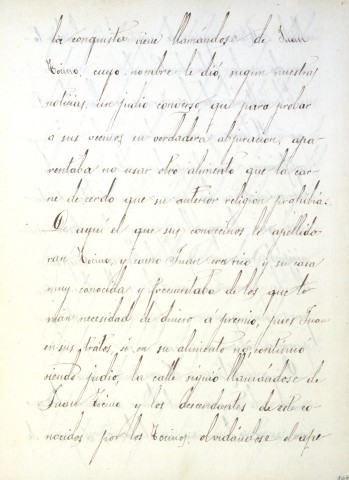 la conquista viene llamandose de Juan
Tocino, cuyo nombre le dió, segun nuestras
noticias, un judio converso, que para probar
a sus vecinos su verdadera abjuracion, apa-
rentaba no usar otro alimento que la car-
ne de cerdo que su anterior religion prohibia.
De aquí el que sus convecinos le apellida-
ran Tocino, y como Juan era rico y su casa
muy conocida y frecuentada de los que te-
nian necesidad de dinero á premio, pues Juan
en sus tratos, si en su alimento no, continuó
siendo judio, la calle siguió llamándose de
Juan Tocino y los descendientes de este co-
nocidos por los Tocinos, olvidándose el ape-